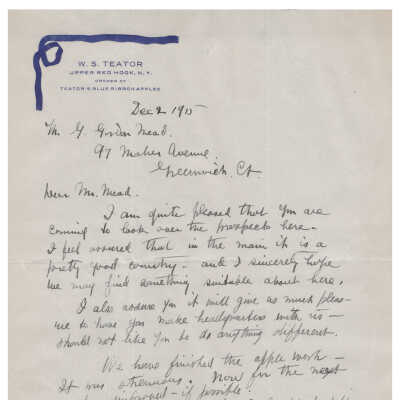 W. S. TEATOR
UPPER RED HOOK, N.Y.
GROWER OF
TEATOR'S BLUE RIBBON APPLES
Dec 2 1915
Mr G. Gordon Mead.
97 Maher Avenue.
Greenwich. Ct.
Dear Mr. Mead.
I am quite pleased that you are
coming to look over the prospects here.
I feel assured that in the main it is a
pretty good country - and I sincerely hope
we may find something suitable about here.
I also assure you it will give us much pleas-
ure to have you make headquarters with us -
should not like you to do anything different.
We have finished the apple work -
It was strenuous. Now for the next
if possible.